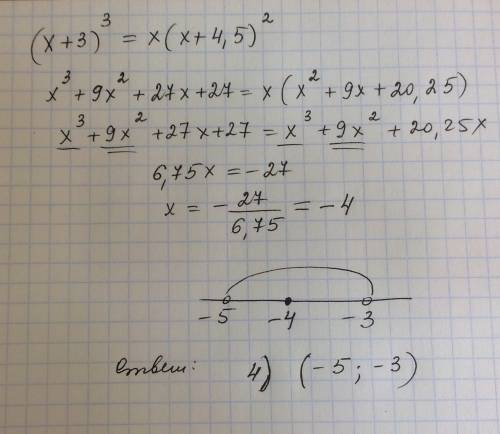 (x+3)³ = x(x+4,5)²
x³+9x²+27x+27 = x(x²+9x+20,25)
x³+9x²+27x+27 = x³+9x²+20,25x
6,75x = -27
x = -27/6,75 = -4
-5 -4 -3
Ответ: 4) (-5; -3)